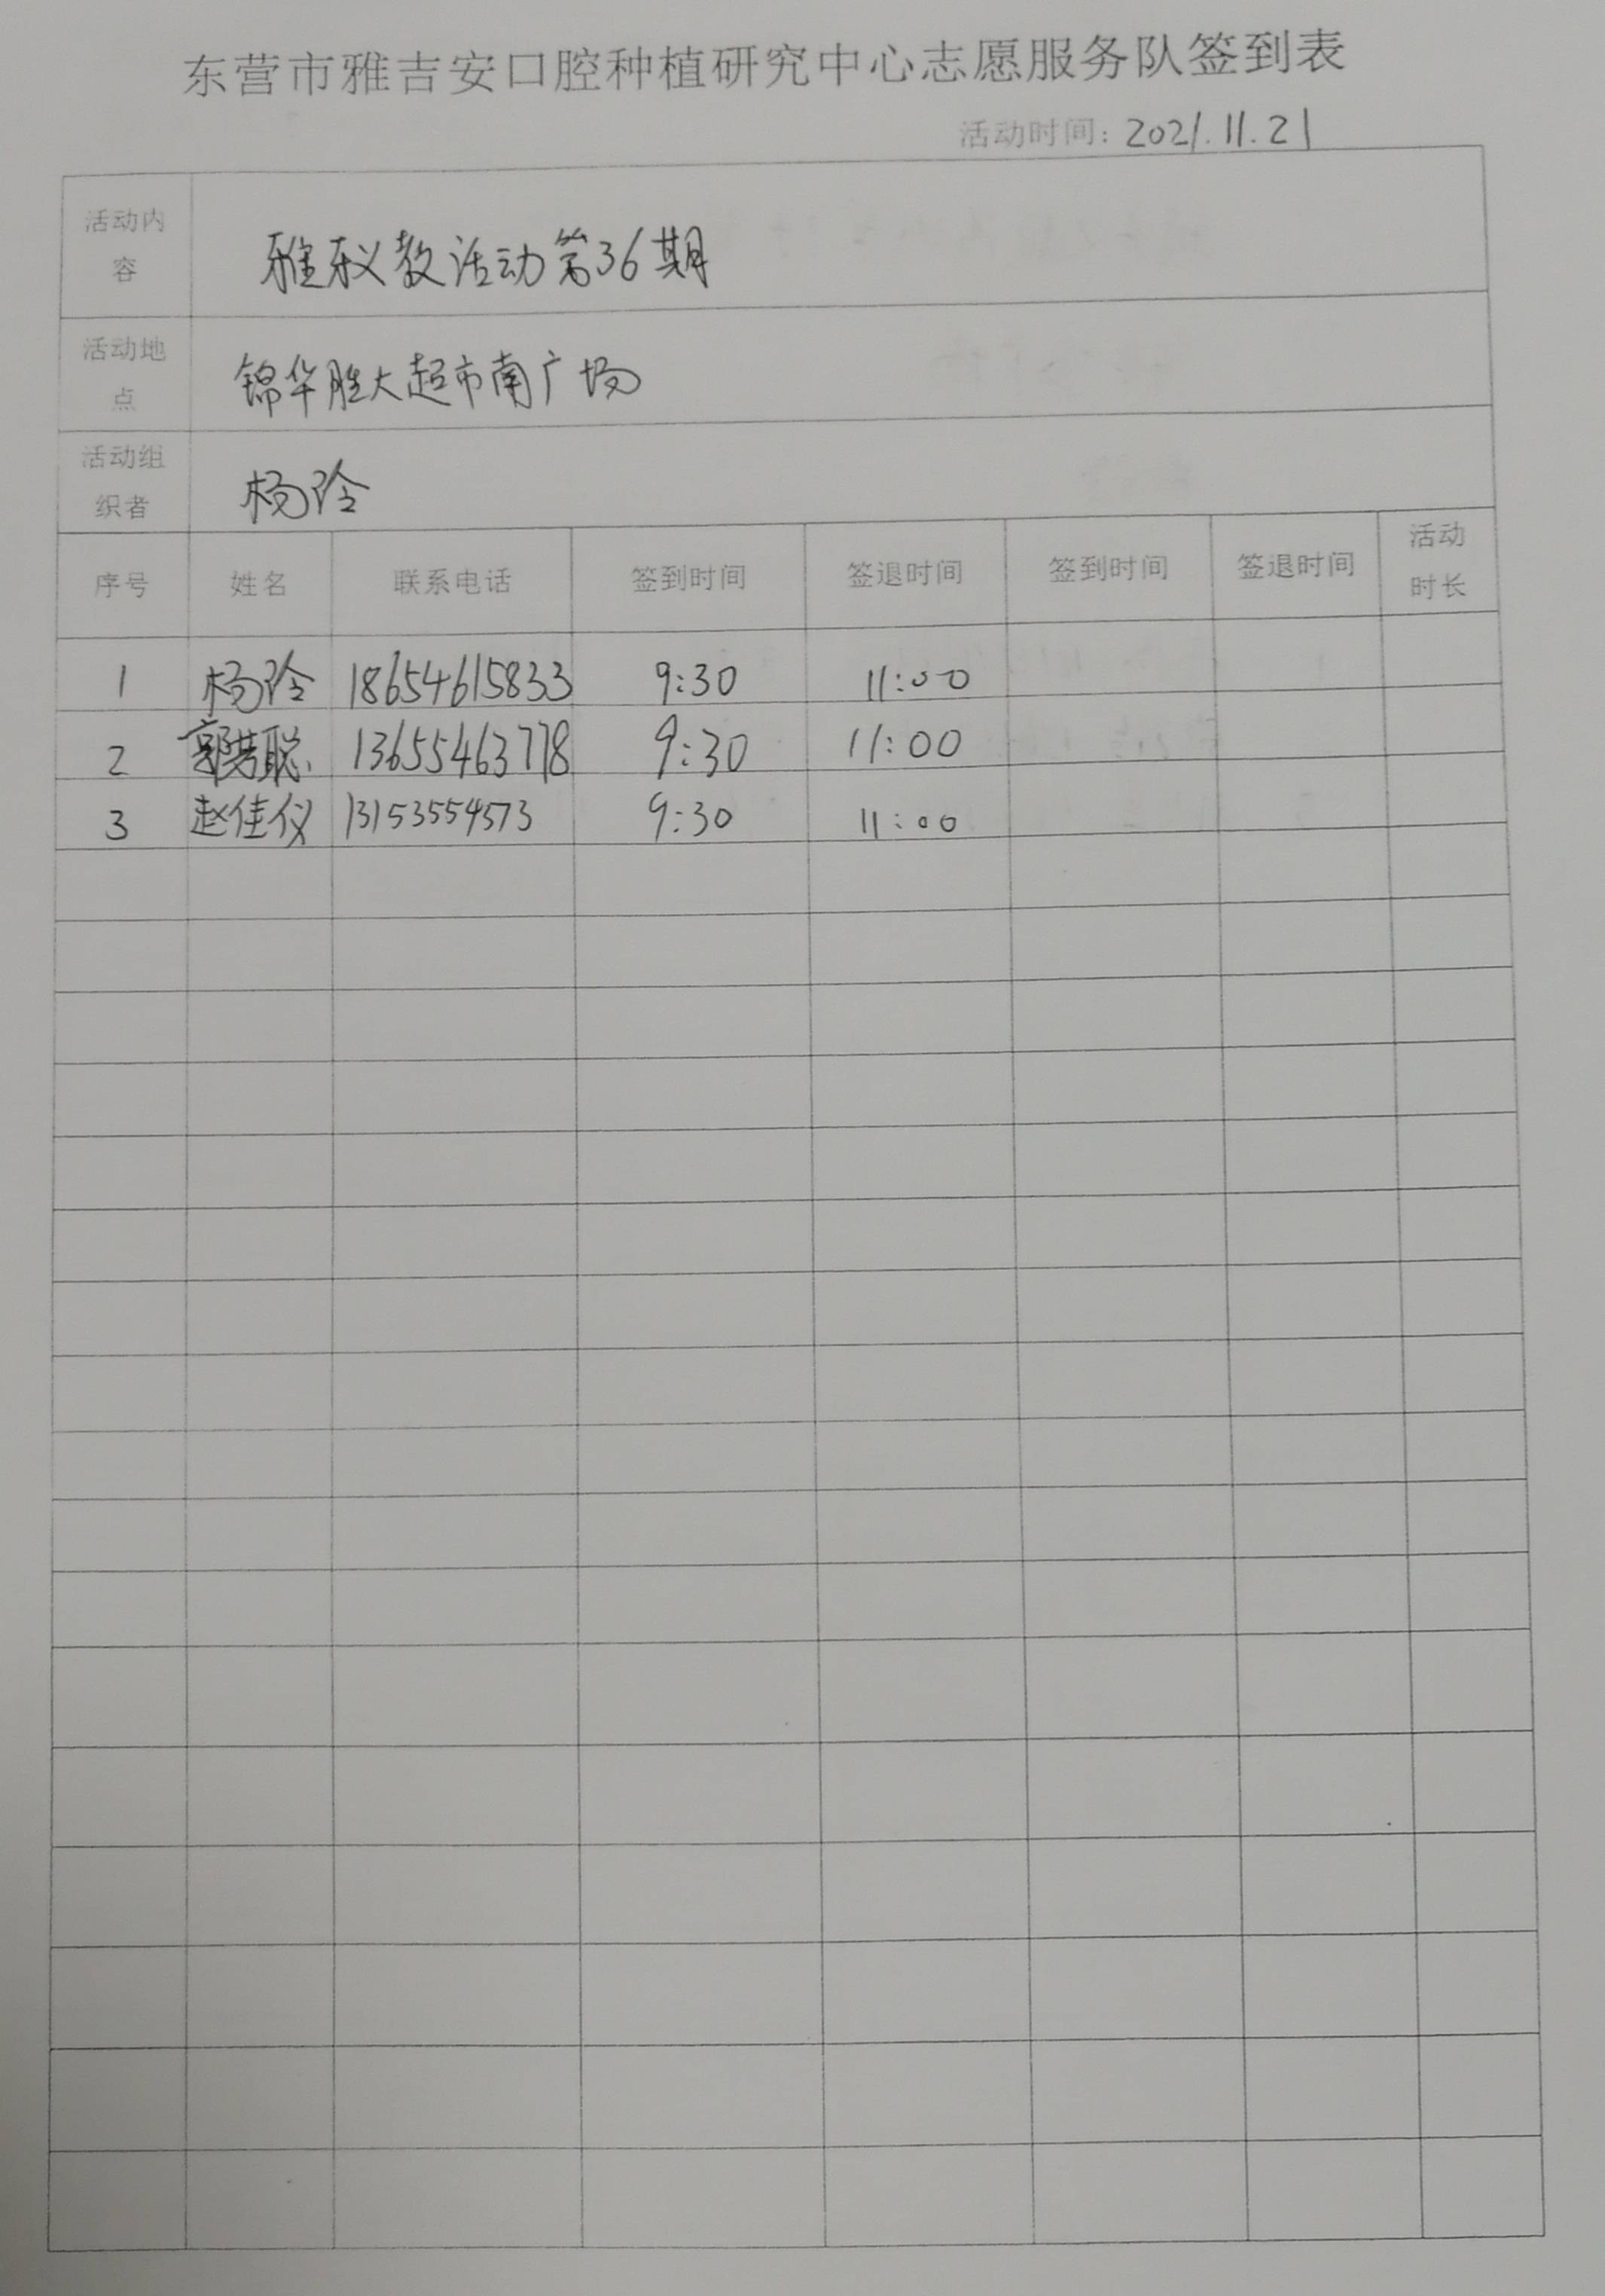 东营市雅吉安口腔种植研究中心志愿服务队签到表
活动时间：2021.11.21
活动内容 雅 教活动第36期
活动地点 锦华胜大超市南广场
活动组织者 杨玲
序号 姓名 联系电话 签到时间 签退时间 签到时间 签退时间 活动时长
1 杨玲 18654615833 9:30 11:00
2 郭芸聪 13655463778 9:30 11:00
3 赵佳仪 13153554573 9:30 11:00